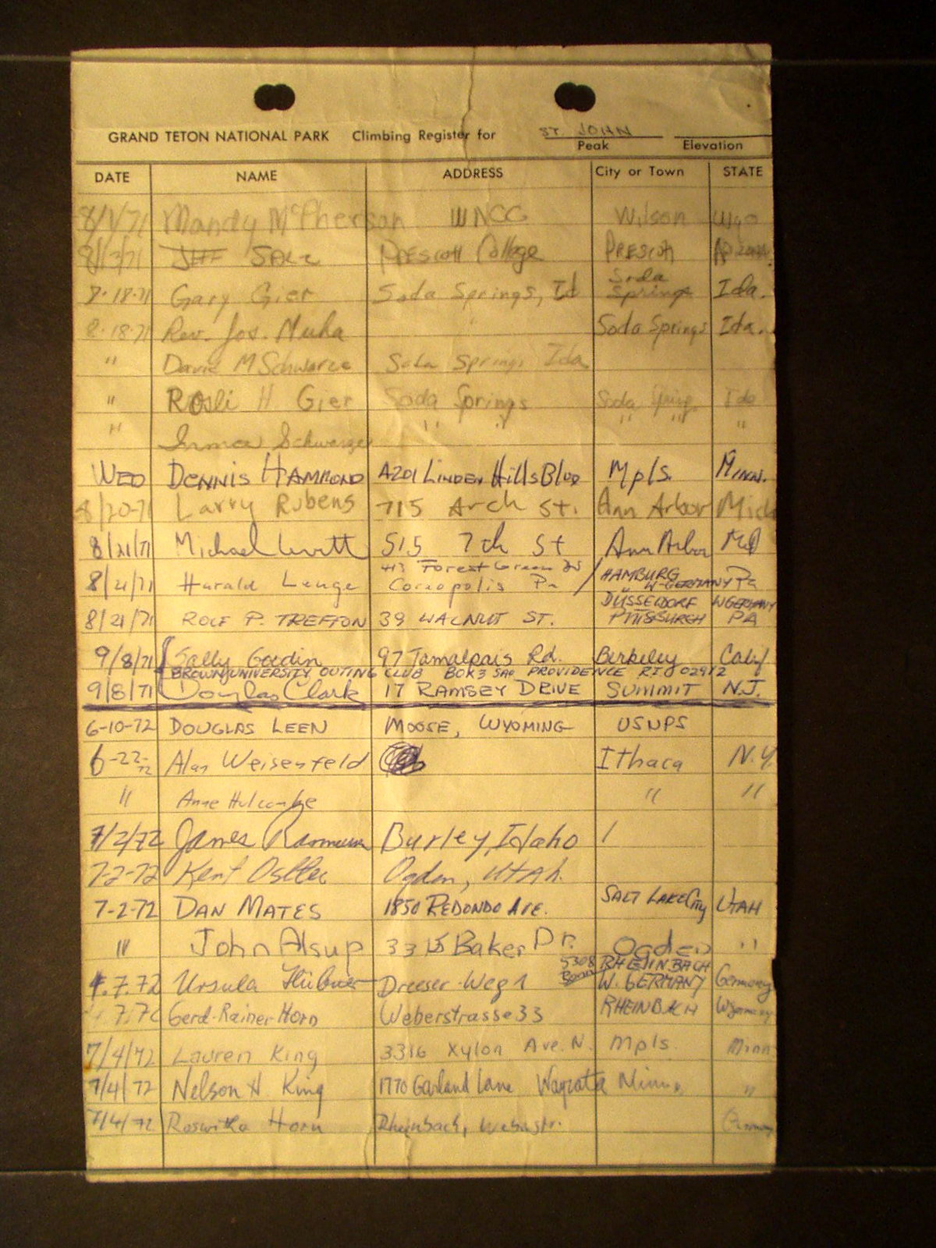 GRAND TETON NATIONAL PARK Climbing Register for ST. JOHN
Peak Elevation
DATE NAME ADDRESS City or Town STATE
8/1/71 Mandy McPherson WNCG Wilson Wyo
8/13/71 JEFF SALZ PRESCOTT College PRESCOTT
8-18-71 Gary Gier Soda Springs, Id Soda Springs Ida.
8-18-71 Rev. Jos. Muha Soda Springs Ida.
" David M Schwarze Soda Springs Ida
" Rosli H Gier Soda Springs Soda Spring Ida
" Irma Schwarze " " " " "
WED DENNIS HAMMOND 4201 LINDEN Hills Blvd Mpls. MINN.
8/20-71 Larry Rubens 715 Arch St. Ann Arbor Mich
8/21/71 Michael Levitt 515 7th St Ann Arbor
8/21/71 Harald Lange 413 Forest Green Coreopolis Pa / HAMBURG W-GERMANY Pa
DÜSSELDORF W GERMANY
8/21/71 ROLF P. TREFFON 39 WALNUT ST. PITTSBURGH PA
9/8/71 Sally Godin 97 Tamalpais Rd. Berkeley Calif
BROWN UNIVERSITY OUTING CLUB BOX 3 SAO PROVIDENCE RI 02912
9/8/71 Douglas Clark 17 RAMSEY DRIVE SUMMIT N.J.
6-10-72 DOUGLAS LEEN MOOSE, WYOMING USNPS
6-22-72 Alan Weisenfeld Ithaca N.Y.
" Anne Holcombe " "
7/2/72 James Rasmussen Burley, Idaho /
7-2-72 Kent Ostler Ogden, UTAH.
7-2-72 DAN MATES 1850 REDONDO AVE. SALT LAKE City UTAH
" John Alsup 3315 Baker Dr. Ogden "
5308 RHEINBACH
4.7.72 Ursula Hübner Dreeser Weg 1 W. GERMANY Germany
7.72 Gerd-Rainer Horn Weberstrasse 33 RHEINBACH W Germany
7/4/72 Lauren King 3316 Xylon Ave. N. Mpls. Minn
7/4/72 Nelson H. King 1770 Garland Lane Wayzata Minn. "
7/4/72 Roswitha Horn Rheinbach, Weberstr. Germany